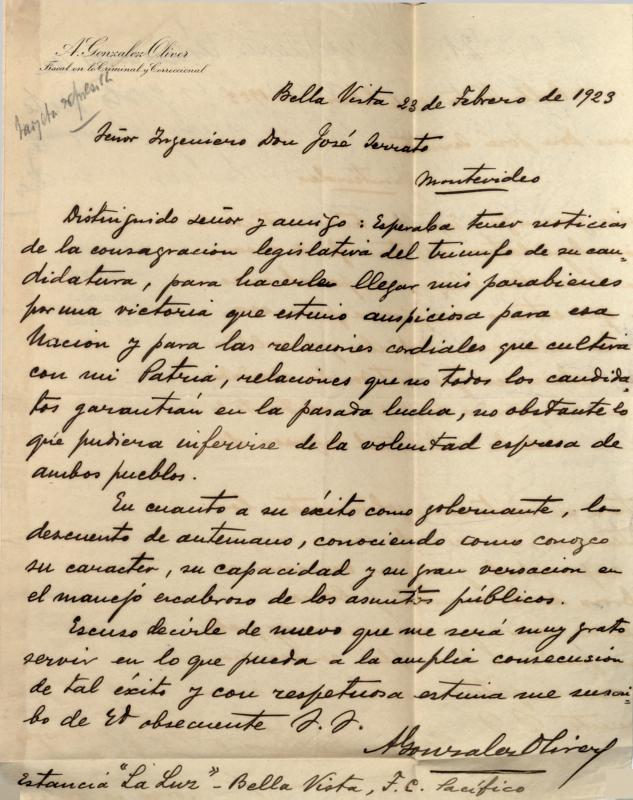 A. Gonzalez Oliver
Fiscal en lo Criminal y Correccional
Tarjeta
Bella Vista 23 de Febrero de 1923
Señor Ingeniero Don José Serrato
Montevideo
Distinguido señor y amigo: Esperaba tener noticias
de la consagracion legislativa del triunfo de su can-
didatura, para hacerle llegar mis parabienes
por una victoria que estimo auspiciosa para esa
Nacion y para las relaciones cordiales que cultiva
con mi Patria, relaciones que no todos los candida-
tos garantían en la pasada lucha, no obstante lo
que pudiera inferirse de la voluntad espresa de
ambos pueblos.
En cuanto a su éxito como gobernante, lo
descuento de antemano, conociendo como conozco
su caracter, su capacidad y su gran versacion en
el manejo escabroso de los asuntos públicos.
Escuso decirle de nuevo que me será muy grato
servir en lo que pueda a la amplia consecusión
de tal éxito y con respetuosa estima me suscri-
bo de Ud obsecuente S. S.
A Gonzalez Oliver
Estancia "La Luz" - Bella Vista, F. C. Pacífico